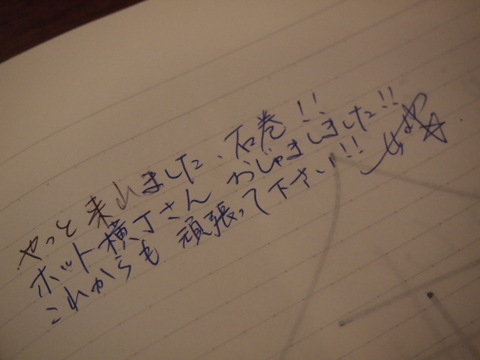 やっと来れました、石巻!!
ホット横丁さん おじゃましました!!
これからも 頑張って下さい!!